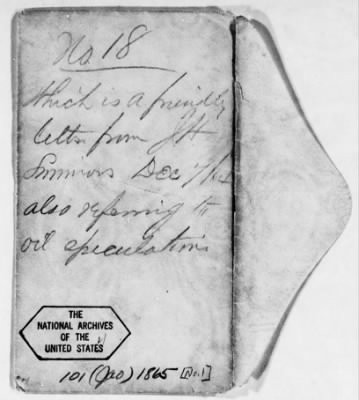 No. 18
which is a friendly
letter from J H
Simmons Dec
also referring to
oil speculations
THE
NATIONAL ARCHIVES
OF THE
UNITED STATES
101 (JAO) 1865 [No.1]